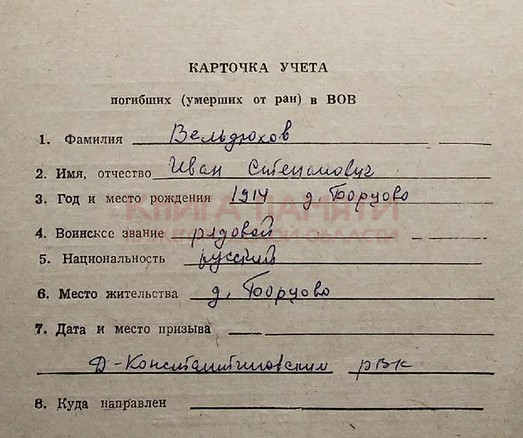 КАРТОЧКА УЧЕТА
погибших (умерших от ран) в ВОВ
1. Фамилия Вельдюхов
2. Имя, отчество Иван Степанович
3. Год и место рождения 1914 д. Борцово
КНИГА ПАМЯТИ
4. Воинское звание рядовой
НИЖЕГОРОДСКОЙ ОБЛАСТИ
5. Национальность русский
6. Место жительства д. Борцово
7. Дата и место призыва
Д-Константиновским рвк
8. Куда направлен